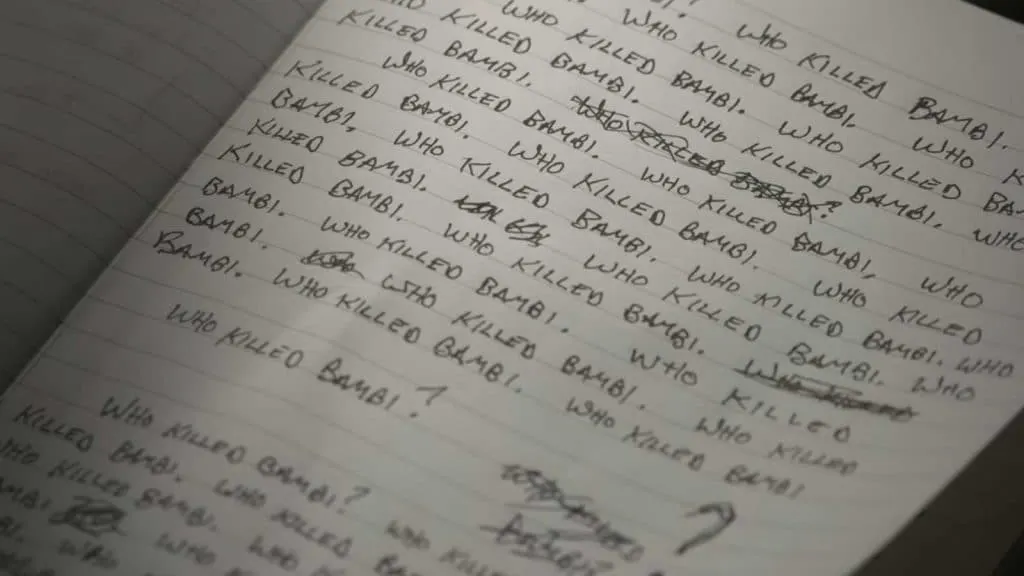 WHO KILLED BAMBI.
WHO KILLED BAMBI. WHO K
WHO KILLED BAMBI. WHO KILLED BAM
WHO KILLED BAMBI. WHO KILLED BAMBI, WHO
KILLED BAMBI. WHO KILLED BAMBI?
WHO KILLED BAMBI. WHO KILLED BAMBI, WHO
KILLED BAMBI. WHO KILLED BAMBI. WHO KILLED
BAMBI, WHO KILLED BAMBI. WHO KILLED BAMBI. WHO
KILLED BAMBI. WHO KILLED BAMBI. WHO
KILLED BAMBI. WHO KILLED BAMBI.
BAMBI. WHO KILLED BAMBI. WHO KILLED
BAMBI. WHO KILLED BAMBI. WHO KILLED
BAMBI. WHO KILLED BAMBI. WHO KILLED BAMBI
WHO KILLED BAMBI?
?
WHO KILLED BAMBI? WHO KILLE
KILLED BAMBI. WHO KILLED BA
WHO KILLED BAMBI. WHO
AMBI WHO
BI. WHO